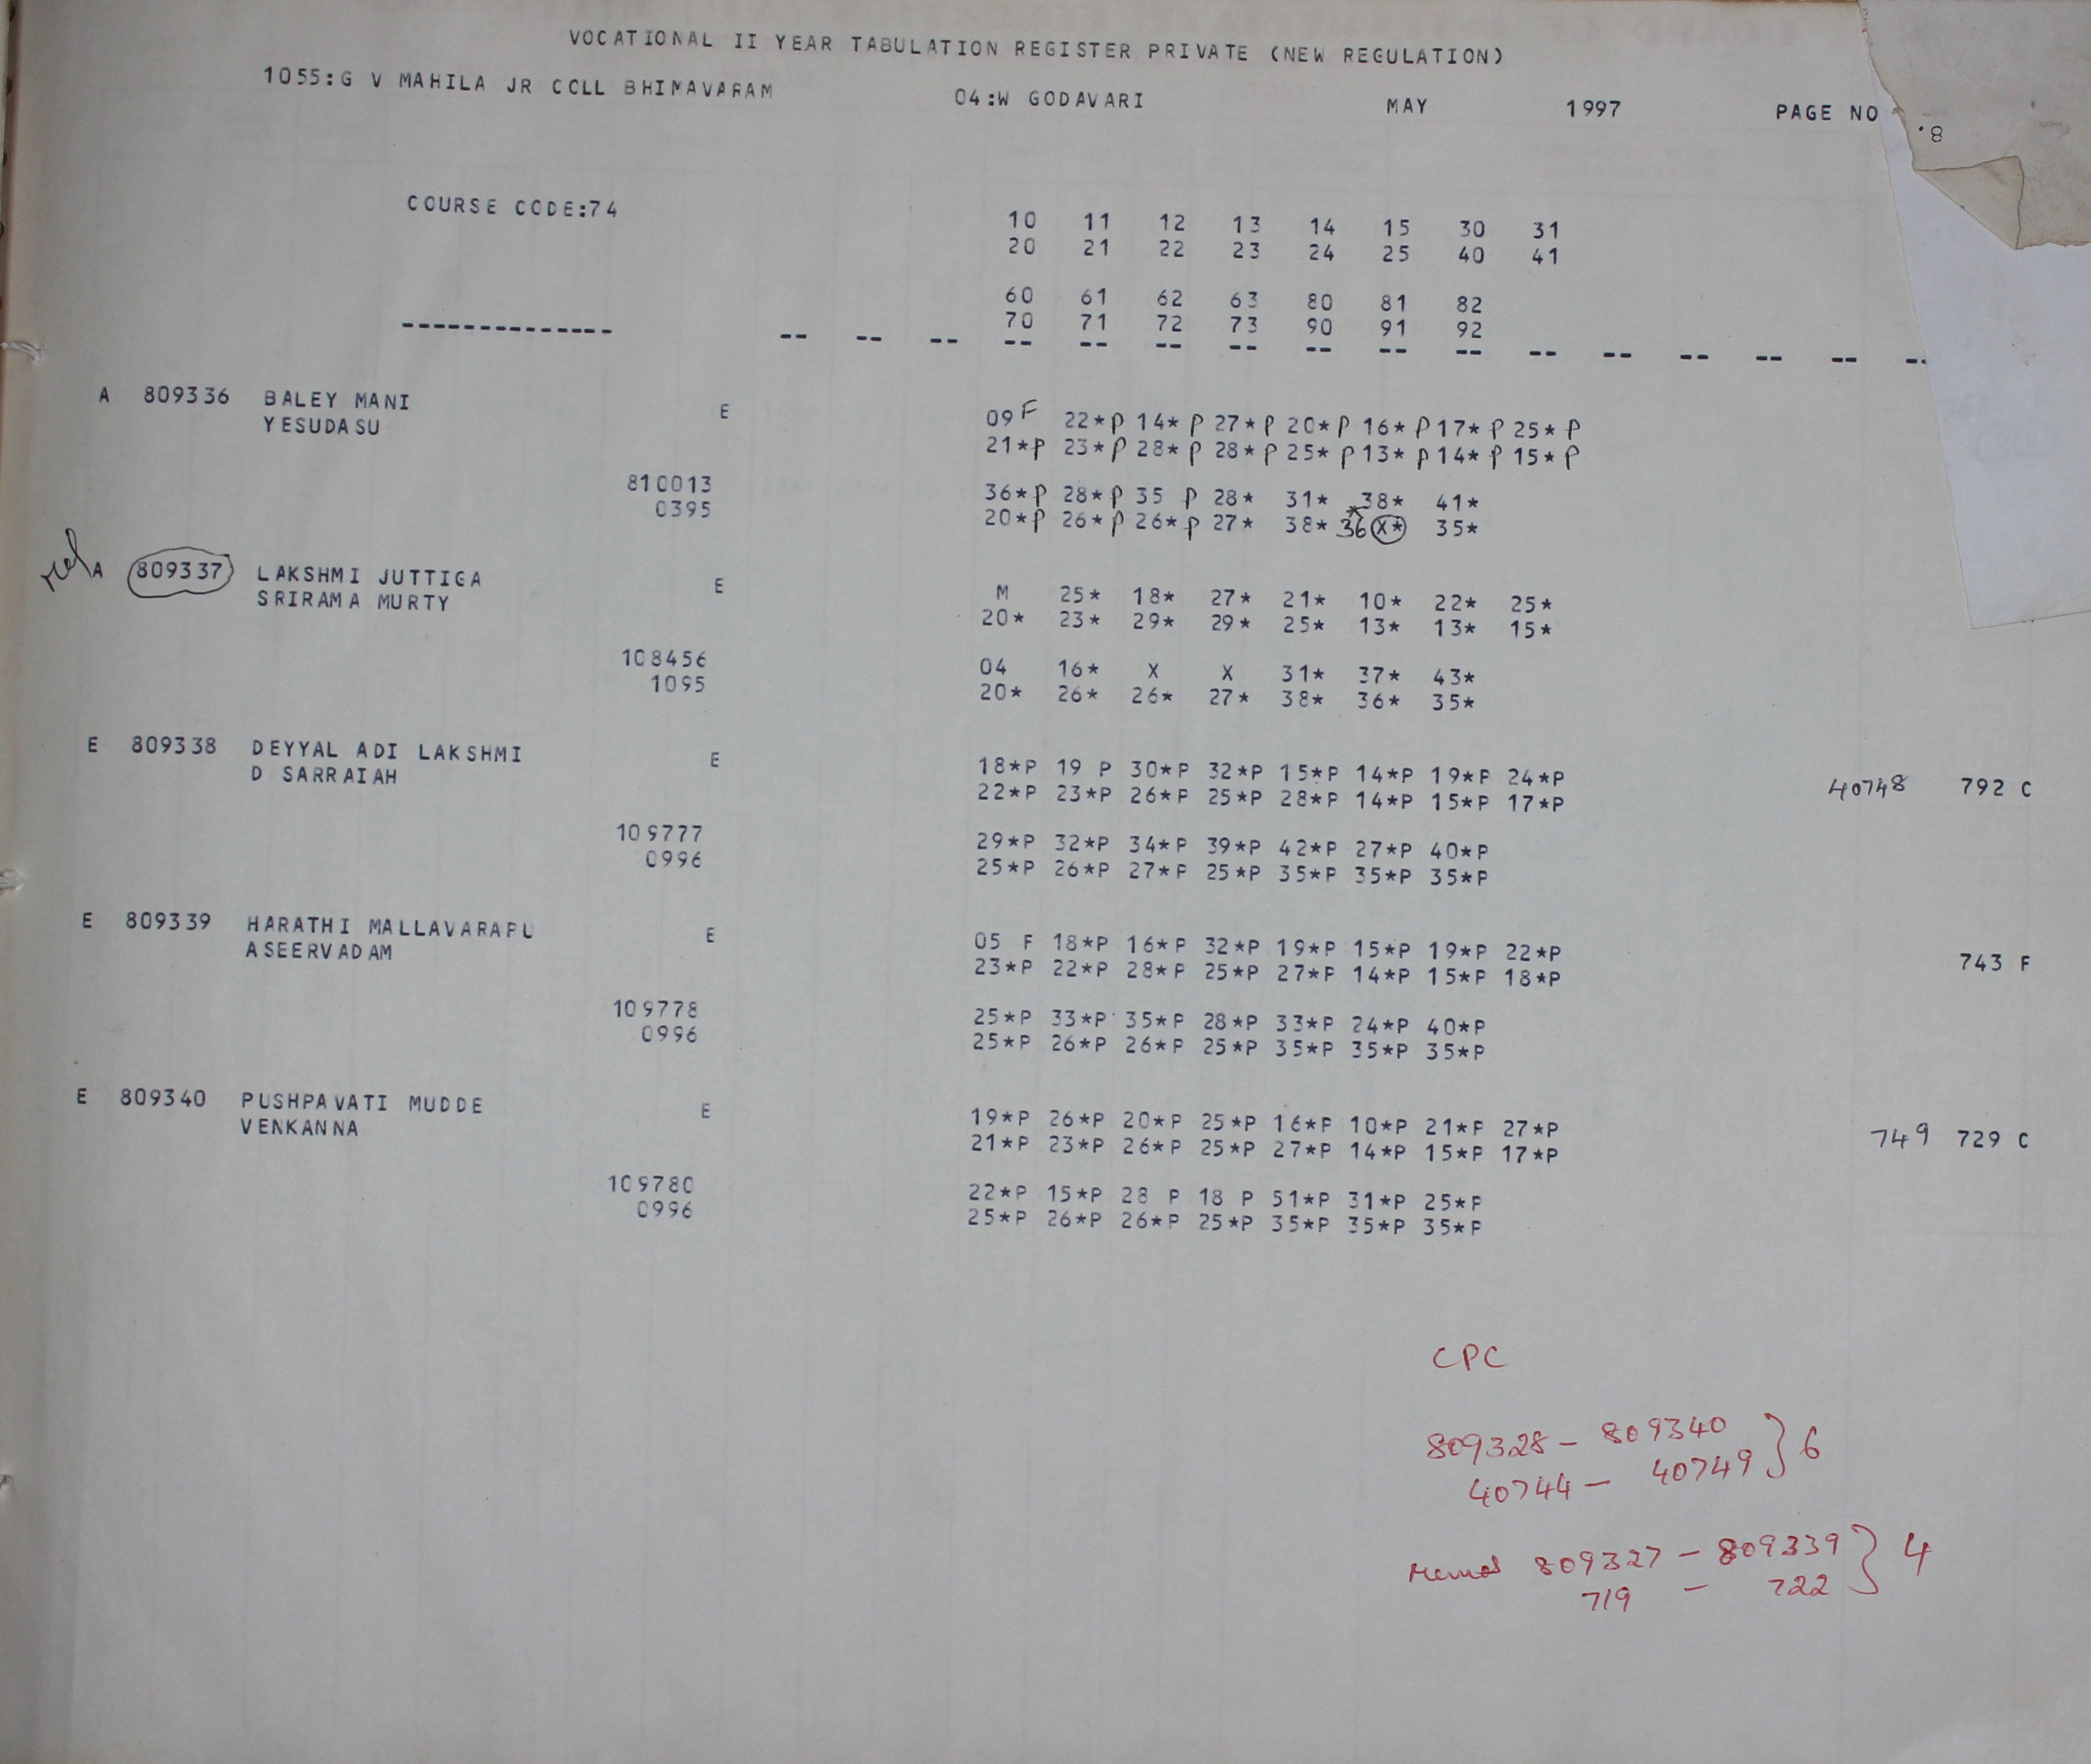 VOCATIONAL II YEAR TABULATION REGISTER PRIVATE (NEW REGULATION)
1055:G V MAHILA JR COLL BHIMAVARAM 04:W GODAVARI MAY 1997 PAGE NO 8.
COURSE CODE:74
10 11 12 13 14 15 30 31
20 21 22 23 24 25 40 41
60 61 62 63 80 81 82
70 71 72 73 90 91 92
-------------- -- -- -- -- -- -- -- -- -- -- -- -- -- -- -- --
A 809336 BALEY MANI E 09 F 22*P 14*P 27*P 20*P 16*P 17*P 25*P
YESUDASU 21*P 23*P 28*P 28*P 25*P 13*P 14*P 15*P
810013 36*P 28*P 35 P 28* 31* 38* 41*
0395 20*P 26*P 26*P 27* 38* 36* X* 35*
A 809337 LAKSHMI JUTTIGA E M 25* 18* 27* 21* 10* 22* 25*
SRIRAMA MURTY 20* 23* 29* 29* 25* 13* 13* 15*
108456 04 16* X X 31* 37* 43*
1095 20* 26* 26* 27* 38* 36* 35*
E 809338 DEYYAL ADI LAKSHMI E 18*P 19 P 30*P 32*P 15*P 14*P 19*P 24*P 40748 792 C
D SARRAIAH 22*P 23*P 26*P 25*P 28*P 14*P 15*P 17*P
109777 29*P 32*P 34*P 39*P 42*P 27*P 40*P
0996 25*P 26*P 27*P 25*P 35*P 35*P 35*P
E 809339 HARATHI MALLAVARAPU E 05 F 18*P 16*P 32*P 19*P 15*P 19*P 22*P 743 F
ASEERVADAM 23*P 22*P 28*P 25*P 27*P 14*P 15*P 18*P
109778 25*P 33*P 35*P 28*P 33*P 24*P 40*P
0996 25*P 26*P 26*P 25*P 35*P 35*P 35*P
E 809340 PUSHPAVATI MUDDE E 19*P 26*P 20*P 25*P 16*P 10*P 21*P 27*P 749 729 C
VENKANNA 21*P 23*P 26*P 25*P 27*P 14*P 15*P 17*P
109780 22*P 15*P 28 P 18 P 51*P 31*P 25*P
0996 25*P 26*P 26*P 25*P 35*P 35*P 35*P
CPC
809328 - 809340 } 6
40744 - 40749
809327 - 809339 } 4
719 - 722